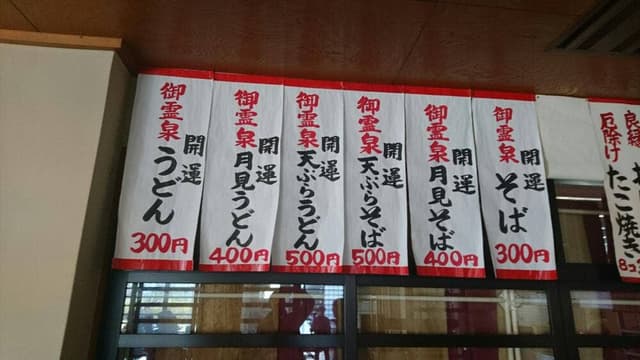 御霊泉
開運
うどん
300円
御霊泉
開運
月見うどん
400円
御霊泉
開運
天ぷらうどん
500円
御霊泉
開運
天ぷらそば
500円
御霊泉
開運
月見そば
400円
御霊泉
開運
そば
300円
良縁
厄除け
たこ焼き
8コ